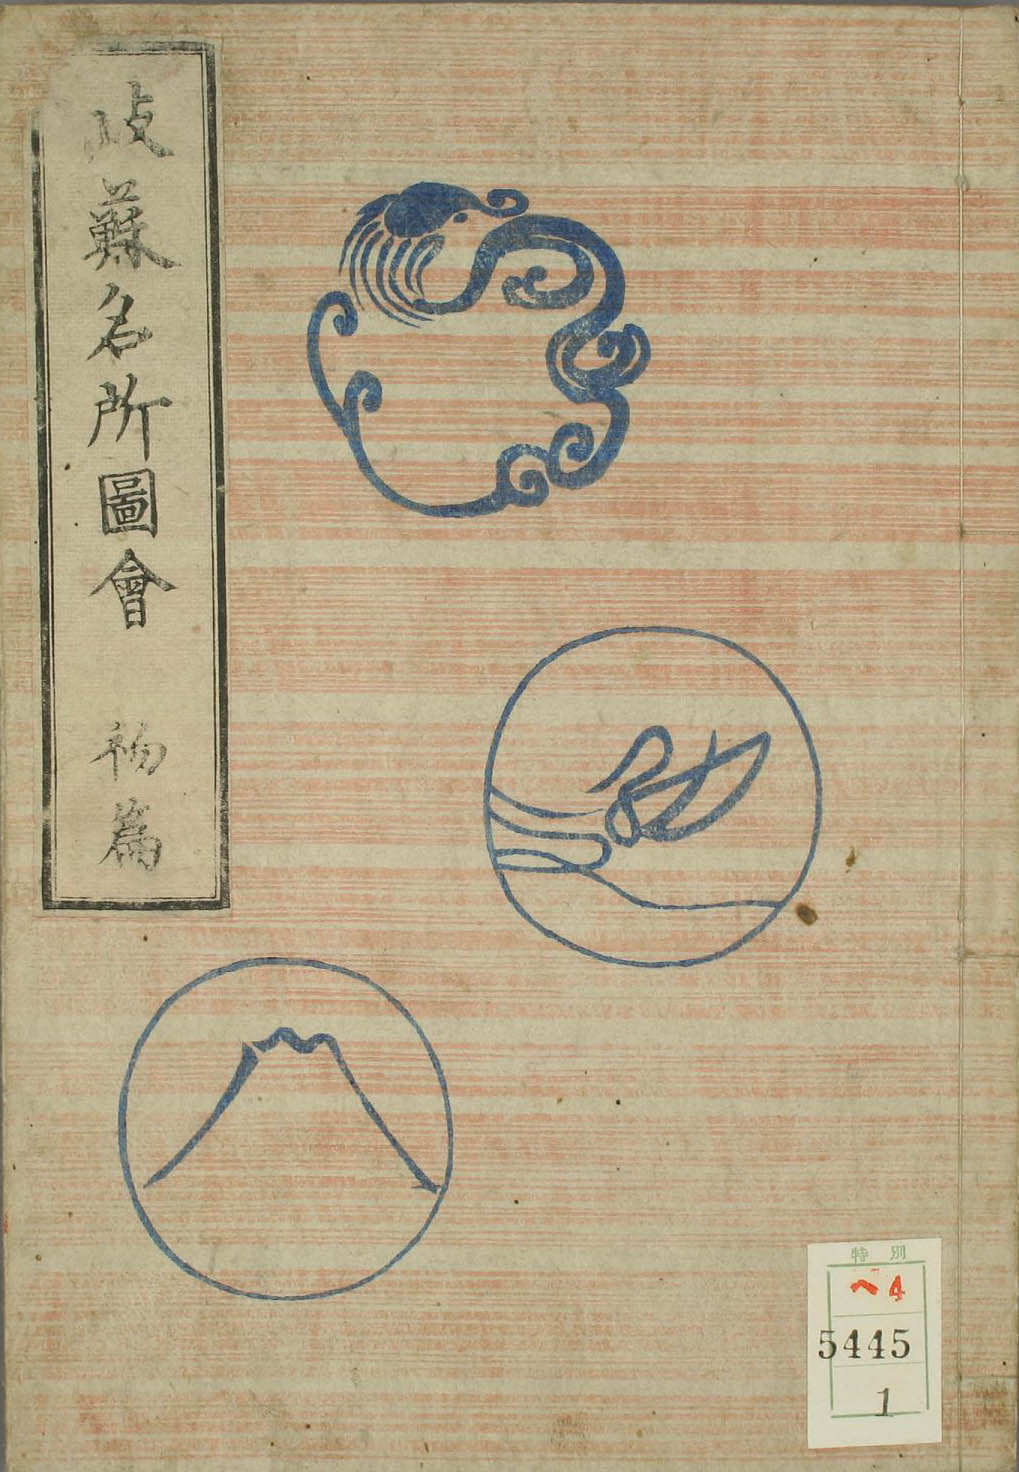 岐蘇名所圖會 初篇
特別
ヘ4
5445
1